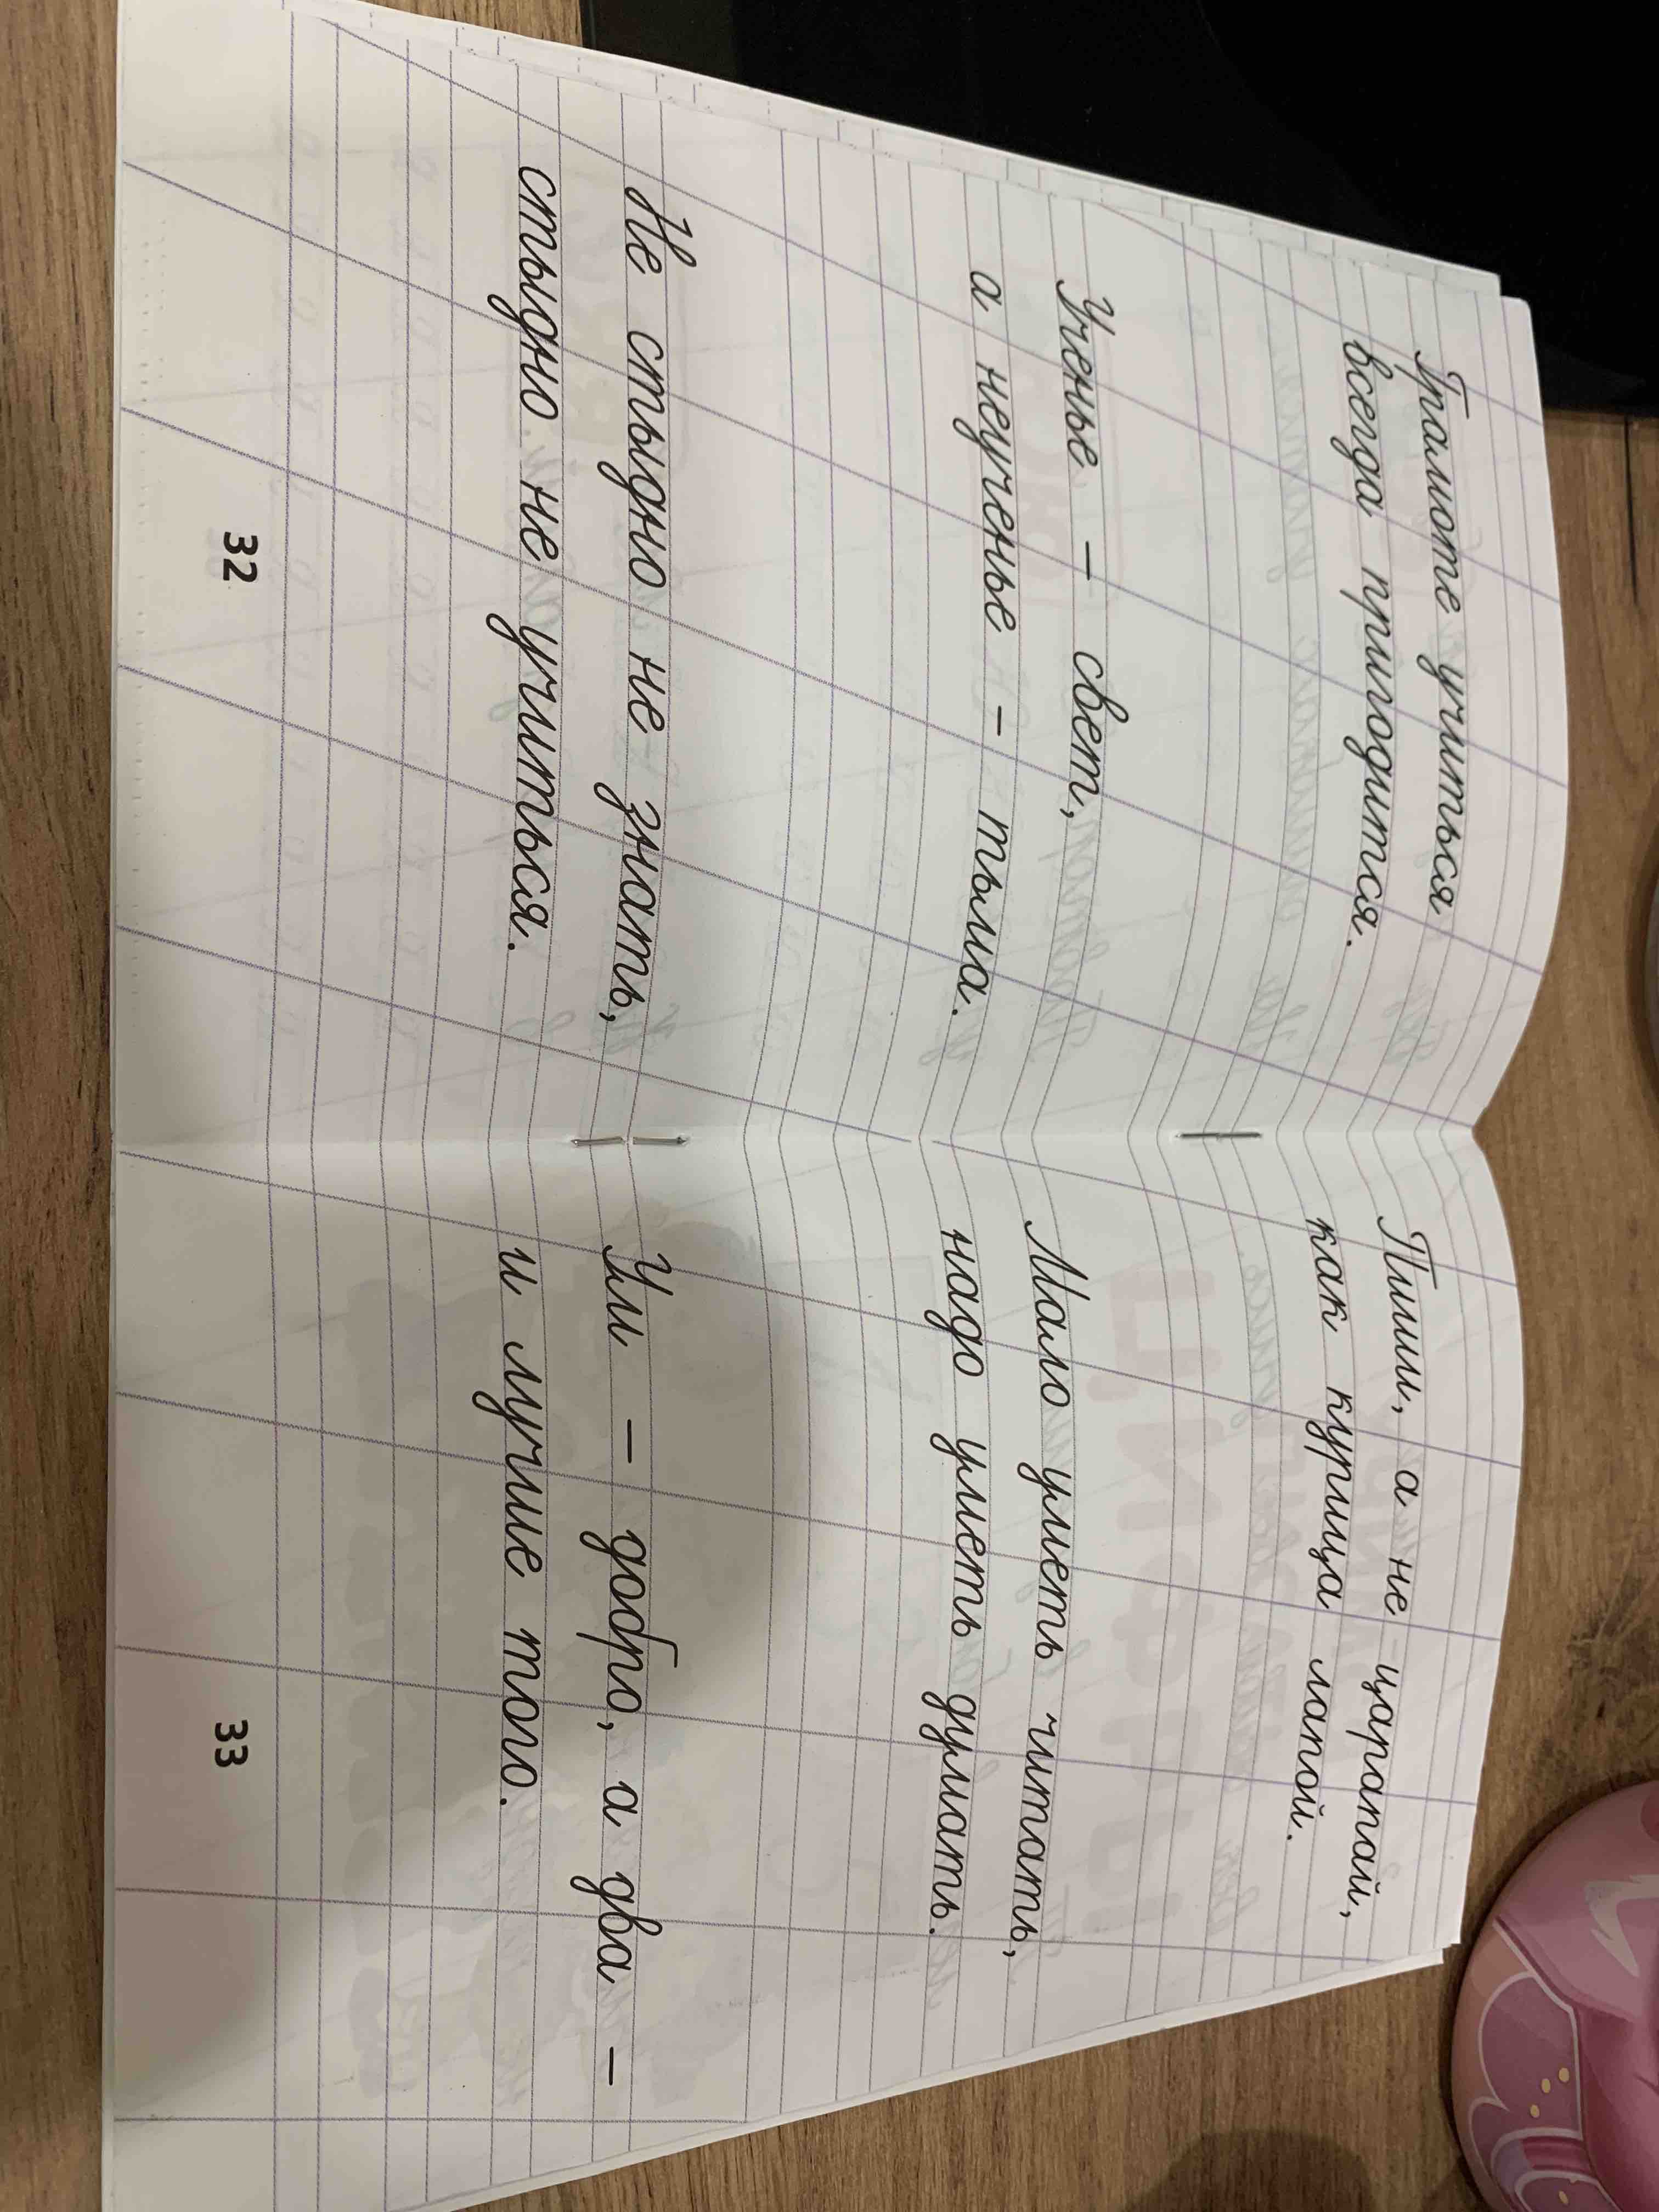 Грамоте учиться
всегда пригодится.
Ученье – свет,
а неученье – тьма.
Не стыдно не знать,
стыдно не учиться.
32
Пиши, а не царапай,
как курица лапой.
Мало уметь читать,
надо уметь думать.
Ум – добро, а два –
и лучше того.
33